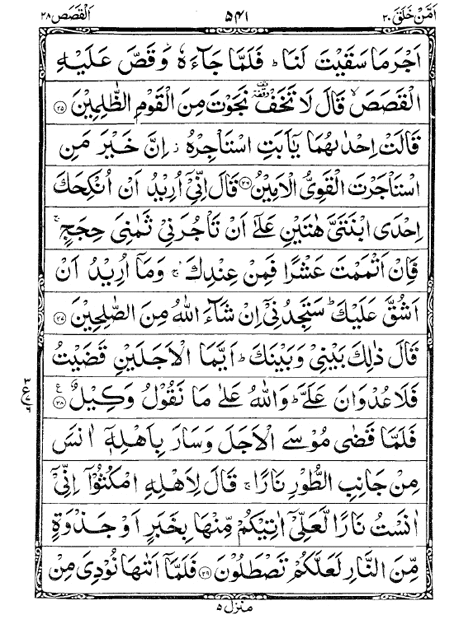 اَمَّنْ خَلَقَ ٢٠ ٥٤١ اَلْقَصَص ٢٨
اَجْرَ مَا سَقَيْتَ لَنَا ؕ فَلَمَّا جَآءَهٗ وَقَصَّ عَلَيْهِ
الْقَصَصَ ۙ قَالَ لَا تَخَفْ ۥ۫ نَجَوْتَ مِنَ الْقَوْمِ الظّٰلِمِيْنَ ﴿٢٥﴾
قَالَتْ اِحْدٰىهُمَا يٰۤاَبَتِ اسْتَاْجِرْهُ ؗ اِنَّ خَيْرَ مَنِ
اسْتَاْجَرْتَ الْقَوِيُّ الْاَمِيْنُ ﴿٢٦﴾ قَالَ اِنِّيْۤ اُرِيْدُ اَنْ اُنْكِحَكَ
اِحْدَى ابْنَتَيَّ هٰتَيْنِ عَلٰۤى اَنْ تَاْجُرَنِيْ ثَمٰنِيَ حِجَجٍ ۚ
فَاِنْ اَتْمَمْتَ عَشْرًا فَمِنْ عِنْدِكَ ۚ وَمَاۤ اُرِيْدُ اَنْ
اَشُقَّ عَلَيْكَ ؕ سَتَجِدُنِيْۤ اِنْ شَآءَ اللّٰهُ مِنَ الصّٰلِحِيْنَ ﴿٢٧﴾
قَالَ ذٰلِكَ بَيْنِيْ وَبَيْنَكَ ؕ اَيَّمَا الْاَجَلَيْنِ قَضَيْتُ
فَلَا عُدْوَانَ عَلَيَّ ؕ وَاللّٰهُ عَلٰى مَا نَقُوْلُ وَكِيْلٌ ﴿٢٨﴾
فَلَمَّا قَضٰى مُوْسَى الْاَجَلَ وَسَارَ بِاَهْلِهٖۤ اٰنَسَ
مِنْ جَانِبِ الطُّوْرِ نَارًا ۚ قَالَ لِاَهْلِهِ امْكُثُوْۤا اِنِّيْۤ
اٰنَسْتُ نَارًا لَّعَلِّيْۤ اٰتِيْكُمْ مِّنْهَا بِخَبَرٍ اَوْ جَذْوَةٍ
مِّنَ النَّارِ لَعَلَّكُمْ تَصْطَلُوْنَ ﴿٢٩﴾ فَلَمَّاۤ اَتٰىهَا نُوْدِيَ مِنْ
منزل ٥